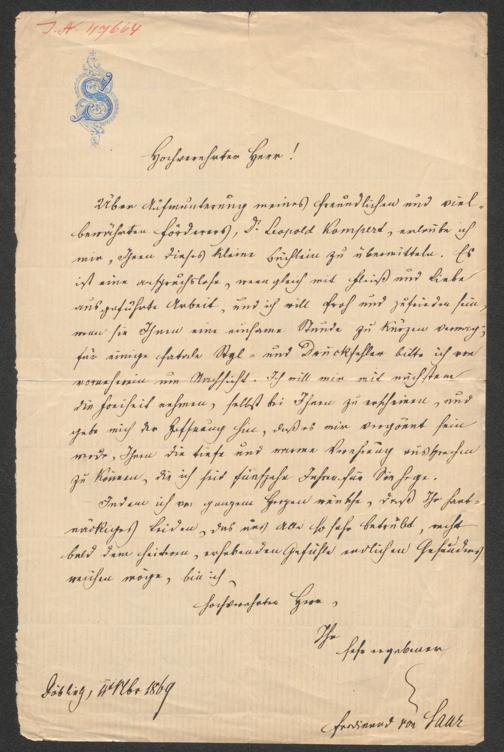 I. N. 49664
S
Hochverehrter Herr!
Über Aufmunterung meines freundlichen und viel-
bewährten Förderers, Dr Leopold Kompert, erlaube ich
mir, Ihnen dieses kleine Büchlein zu übermitteln. Es
ist eine anspruchslose, wenngleich mit Fleiß und Liebe
ausgeführte Arbeit, und ich will froh und zufrieden sein,
wenn sie Ihnen eine einsame Stunde zu kürzen vermag;
für einige fatale Styl- und Druckfehler bitte ich von
vorneherein um Nachsicht. Ich will mir mit nächstem
die Freiheit nehmen, selbst bei Ihnen zu erscheinen, und
gebe mich der Hoffnung hin, daß es mir vergönnt sein
werde, Ihnen die tiefe und warme Verehrung aussprechen
zu können, die ich seit fünfzehn Jahren für Sie hege.
Indem ich von ganzem Herzen wünsche, daß Ihr hart-
näckiges Leiden, das uns Alle so sehr betrübt, recht
bald dem heiteren, erhebenden Gefühle endlichen Gesundens
weichen möge, bin ich,
hochverehrter Herr,
Ihr
sehr ergebener
Ferdinand von Saar
Döbling, 1869